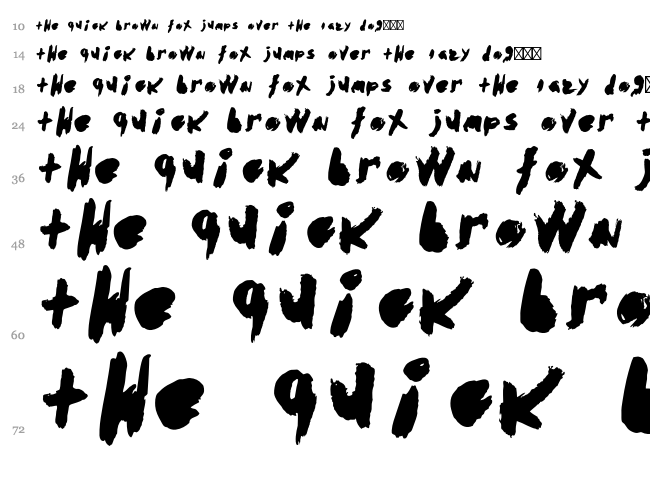 10 the quick brown fox jumps over the lazy dog
14 the quick brown fox jumps over the lazy dog
18 the quick brown fox jumps over the lazy dog
24 the quick brown fox jumps over t
36 the quick brown fox j
48 the quick brown
60 the quick bro
72 the quick b